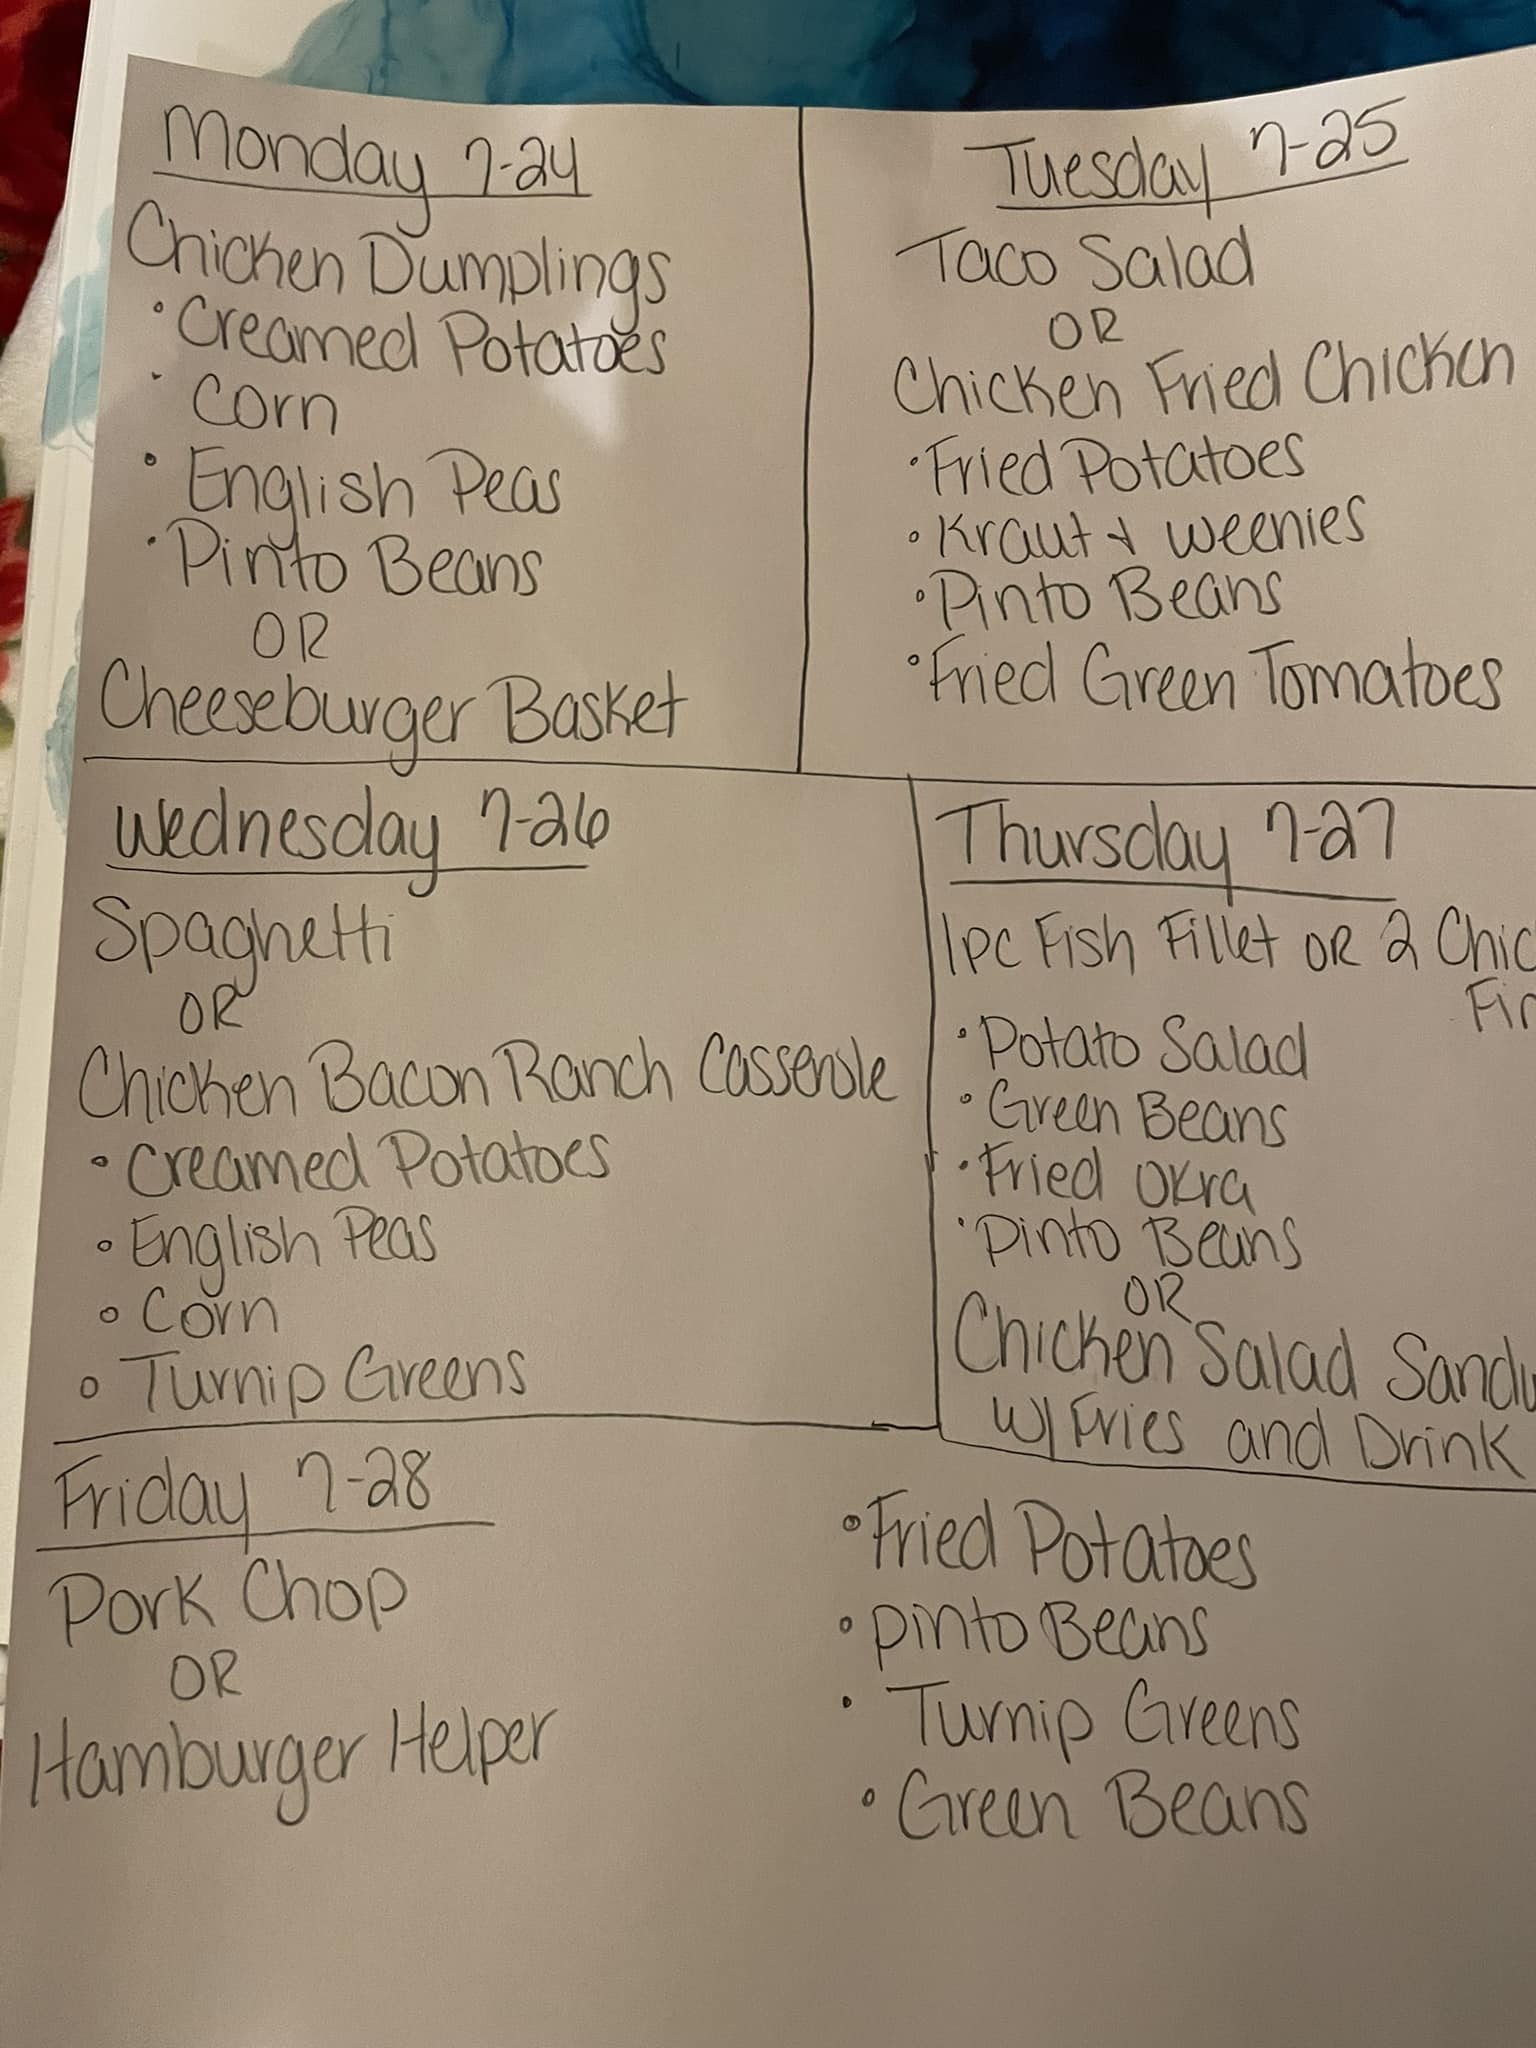 Monday 7-24
Chicken Dumplings
• Creamed Potatoes
• Corn
• English Peas
• Pinto Beans
OR
Cheeseburger Basket
Tuesday 7-25
Taco Salad
OR
Chicken Fried Chicken
• Fried Potatoes
• Kraut & weenies
• Pinto Beans
• Fried Green Tomatoes
Wednesday 7-26
Spaghetti
OR
Chicken Bacon Ranch Casserole
• Creamed Potatoes
• English Peas
• Corn
• Turnip Greens
Thursday 7-27
1pc Fish Fillet OR 2
• Potato Salad
• Green Beans
• Fried Okra
• Pinto Beans
OR
Chicken Salad
w/ Fries and Drink
Friday 7-28
Pork Chop
OR
Hamburger Helper
• Fried Potatoes
• pinto Beans
• Turnip Greens
• Green Beans